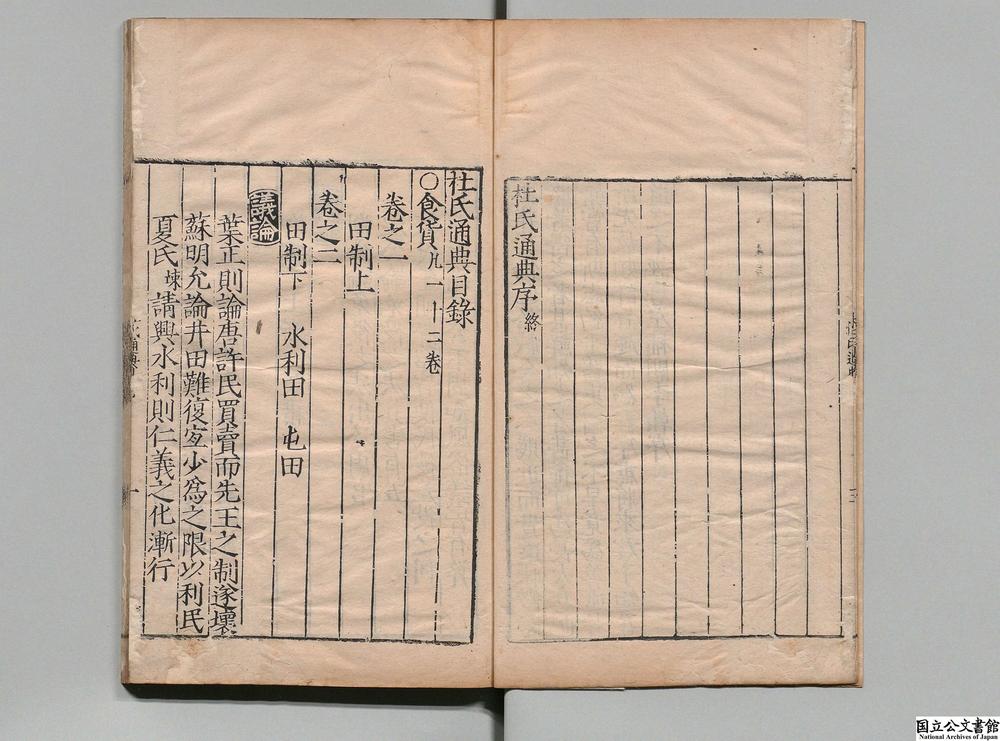 杜氏通典序終
杜氏通典目錄
○食貨凡一十二卷
卷之一
田制上
卷之二
田制下 水利田 屯田
議論
葉正則論唐許民買賣而先王之制遂壞
蘇明允論井田難復宜少爲之限以利民
夏氏竦請興水利則仁義之化漸行
国立公文書館
National Archives of Japan